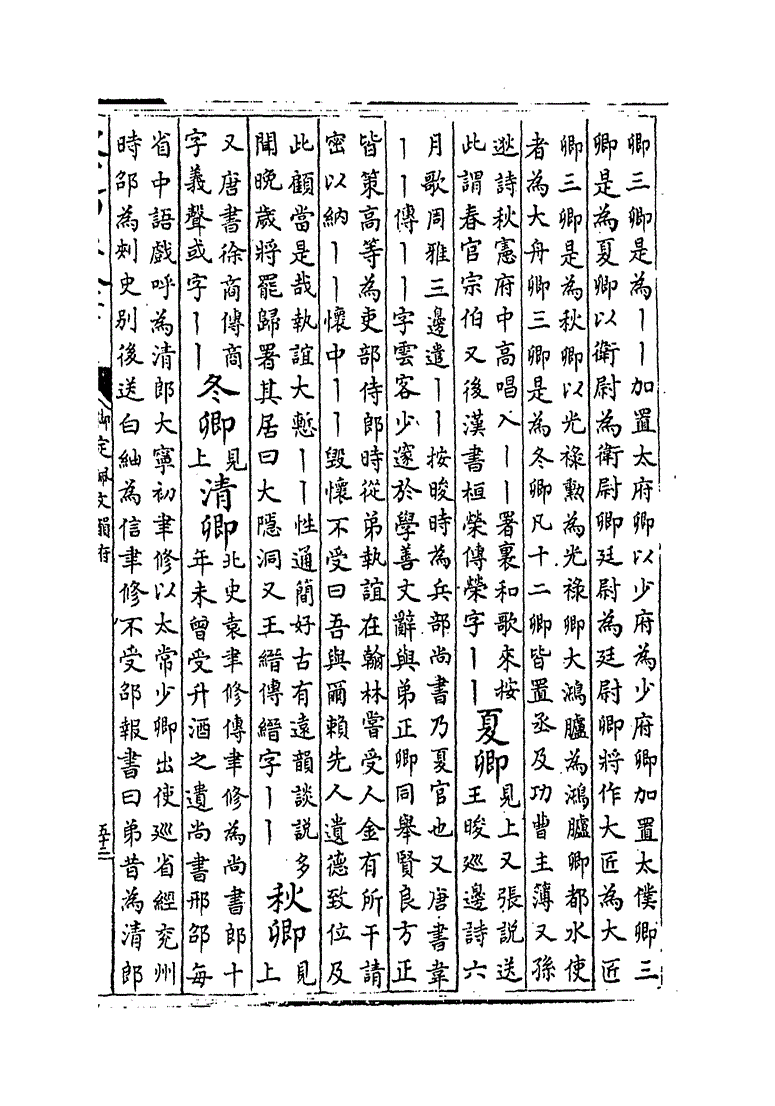 卿三卿是為丨丨加置太府卿以少府為少府卿加置太僕卿三
卿是為夏卿以衛尉為衛尉卿廷尉為廷尉卿將作大匠為大匠
卿三卿是為秋卿以光祿勲為光祿卿大鴻臚為鴻臚卿都水使
者為大舟卿三卿是為冬卿凡十二卿皆置丞及功曹主簿又孫
逖詩秋憲府中高唱入丨丨署裏和歌來按
此謂春官宗伯又後漢書桓榮傳榮字丨丨
夏卿
見上又張説送
王晙巡邊詩六
月歌周雅三邊遣丨丨按晙時為兵部尚書乃夏官也又唐書韋
丨丨傳丨丨字雲客少邃於學善文辭與弟正卿同舉賢良方正
皆策高等為吏部侍郎時從弟執誼在翰林嘗受人金有所干請
密以納丨丨懷中丨丨毁懷不受曰吾與爾賴先人遺德致位及
此顧當是哉執誼大慙丨丨性通簡好古有遠韻談説多
聞晚歲將罷歸署其居曰大隱洞又王縉傳縉字丨丨
秋卿
見
上
又唐書徐商傳商
字義聲或字丨丨
冬卿
見
上
清卿
北史袁聿修傳聿修為尚書郎十
年未曾受升酒之遺尚書邢邵每
省中語戲呼為清郎大寧初聿修以太常少卿出使巡省經兖州
時邵為刺史別後送白紬為信聿修不受邵報書曰弟昔為清郎
御定佩文韻府
五十三